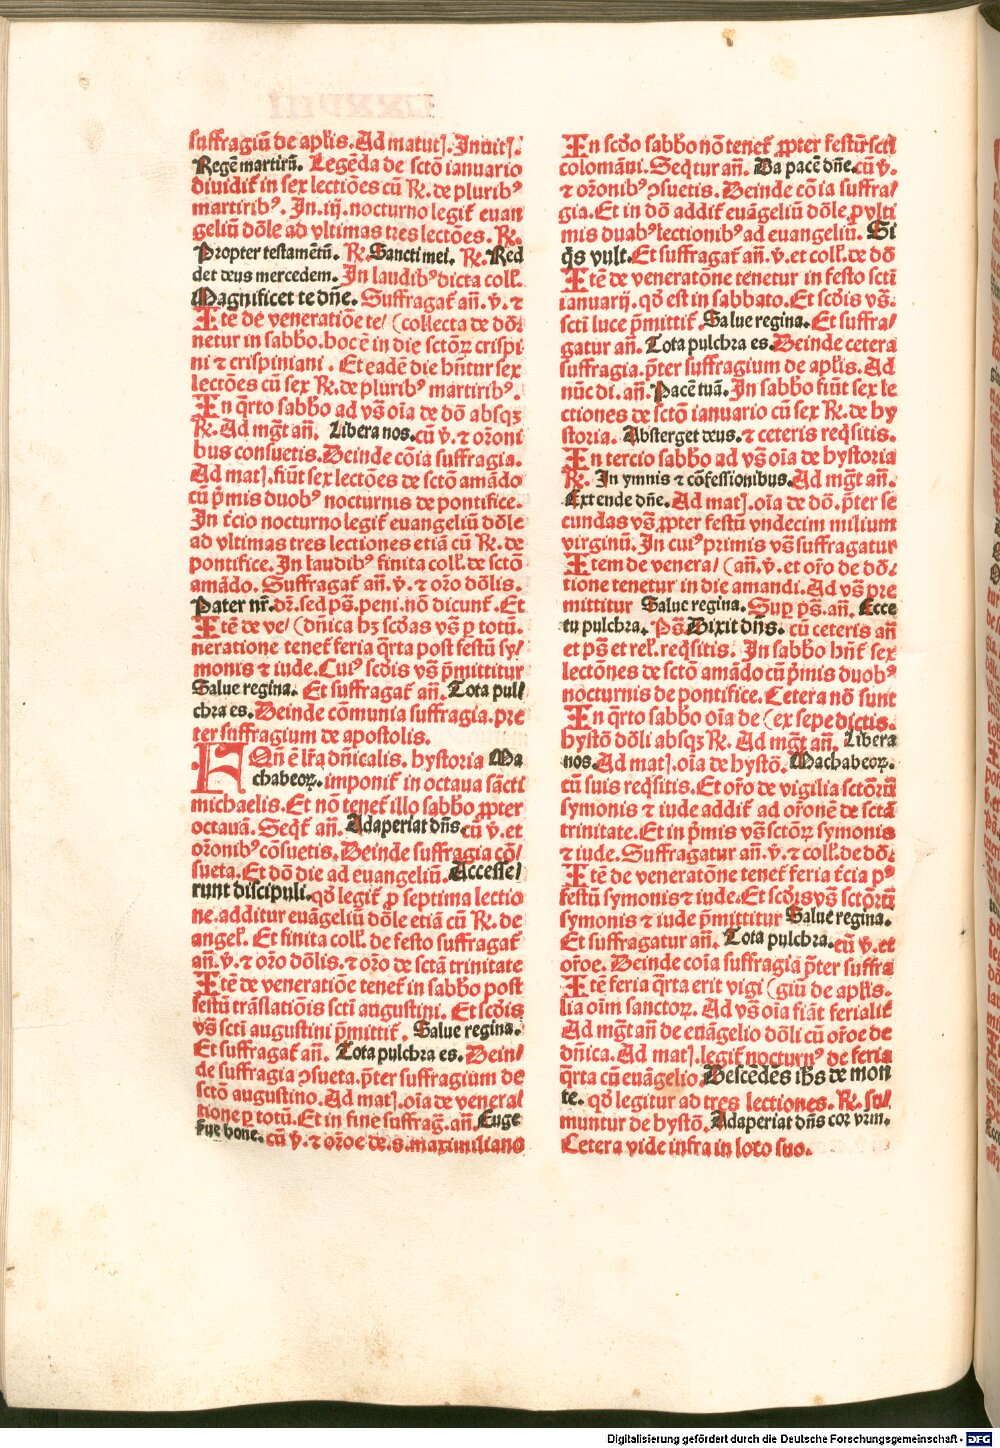 suffragiū de apl̄is. Ad matut̄. Inuit̄.
Regē martirū. Legēda de sctō ianuario
diuidit̄ in sex lectiōes cū R̄. de pluribꝰ
martiribꝰ. In .iij. nocturno legit̄ euan
geliū dōle ad vltimas tres lectōes. R̄.
Propter testamētū. R̄. Sancti mei. R̄. Red
det deus mercedem. In laudibꝰ dicta coll̄.
Magnificet te dn̄e. Suffragat̄ an̄. v̄. ⁊
Itē de veneratiōe te/ (collecta de dō.
netur in sabbo. hoc ē in die sctōꝝ crispi
ni ⁊ crispiniani. Et eadē die hn̄tur sex
lectōes cū sex R̄. de pluribꝰ martiribꝰ.
In q̄rto sabb̄o ad vs̄ oīa de dō absqꝫ
R̄. Ad mgt̄ an̄. Libera nos. cū v̄. ⁊ or̄oni
bus consuetis. Deinde cōia suffragia.
Ad mat̄. fiūt sex lectōes de sctō amādo
cū p̄mis duobꝰ nocturnis de pontifice.
In t̄cio nocturno legit̄ euangeliū dōle
ad vltimas tres lectiones etiā cū R̄. de
pontifice. In laudibꝰ finita coll̄. de sctō
amādo. Suffragat̄ an̄. v̄. ⁊ or̄o dōlis.
Pater nr̄. dr̄. sed ps̄. peni. nō dicunt̄. Et
Itē de ve/ (dn̄ica hꝫ scd̄as vs̄ ꝑ totū.
neratione tenet̄ feria q̄rta post festū sy/
monis ⁊ iude. Cuiꝰ scd̄is vs̄ p̄mittitur
Salue regina. Et suffragat̄ an̄. Tota pul/
chra es. Deinde cōmunia suffragia. pre
ter suffragium de apostolis.
F Qn̄ ē lr̄a dn̄icalis. hystoria Ma
chabeoꝝ. imponit̄ in octaua sācti
michaelis. Et nō tenet̄ illo sabb̄o ꝓpter
octauā. Seqt̄ an̄. Adaperiat dn̄s cū v̄. et
or̄onibꝰ cōsuetis. Deinde suffragia cō/
sueta. Et dō die ad euangeliū. Accesse/
runt discipuli. qd̄ legit̄ ꝓ septima lectio
ne. additur euāgeliū dōle etiā cū R̄. de
angel̄. Et finita coll̄. de festo suffragat̄
an̄. v̄. ⁊ or̄o dōlis. ⁊ or̄o de sctā trinitate
Itē de veneratiōe tenet̄ in sabbo post
festū trāslatiōis scti augustini. Et scd̄is
vs̄ scti augustini p̄mittit̄. Salue regina.
Et suffragat̄ an̄. Tota pulchra es. Dein/
de suffragia ↄsueta. p̄ter suffragium de
sctō augustino. Ad mat̄. oīa de venera/
tione ꝑ totū. Et in fine suffraḡ. an̄. Euge
s̄ue bone. cū v̄. ⁊ or̄oe de. s. maximiliano
In scd̄o sabb̄o nō tenet̄ ꝓpter festū scti
colomāni. Seqtur an̄. Da pacē dn̄e. cū v̄.
⁊ or̄onibꝰ ↄsuetis. Deinde cōia suffra/
gia. Et in dō addit̄ euāgeliū dōle ꝓ vlti
mis duabꝰ lectionibꝰ ad euangeliū. Si
q̄s vult. Et suffragat̄ an̄. v̄. et coll̄. de dō
Itē de veneratōne tenetur in festo scti
ianuarij. qd̄ est in sabbato. Et scd̄is vs̄.
scti luce p̄mittit̄. Salue regina. Et suffra/
gatur an̄. Tota pulchra es. Deinde cetera
suffragia. p̄ter suffragium de apl̄is. Ad
nūc di. an̄. Pacē tuā. In sabb̄o fiūt sex le
ctiones de sctō ianuario cū sex R̄. de hy
storia. Absterget deus. ⁊ ceteris reqsitis.
In tercio sabb̄o ad vs̄ oīa de hystoria
R̄. In ymnis ⁊ cōfessionibus. Ad mgt̄ an̄.
Extende dn̄e. Ad mat̄. oīa de dō. p̄ter se
cundas vs̄ ꝓpter festū vndecim milium
virginū. In cuiꝰ primis vs̄ suffragatur
Item de venera/ (an̄. v̄. et or̄o de dō.
tione tenetur in die amandi. Ad vs̄ pre
mittitur Salue regina. Suꝑ ps̄. an̄. Ecce
tu pulchra. Ps̄ Dixit dn̄s. cū ceteris an̄
et ps̄ et rel̄. reqsitis. In sabb̄o hn̄t̄ sex
lectōnes de sctō amādo cū p̄mis duobꝰ
nocturnis de pontifice. Cetera nō sunt
In q̄rto sabb̄o oīa de (ex sepe dictis.
hystō dōli absqꝫ R̄. Ad mgt̄ an̄. Libera
nos. Ad mat̄. oīa de hystō. Machabeoꝝ.
cū suis reqsitis. Et or̄o de vigilia sctōrū
symonis ⁊ iude addit̄ ad or̄onē de sctā
trinitate. Et in p̄mis vs̄ sctōꝝ symonis
⁊ iude. Suffragatur an̄. v̄. ⁊ coll̄. de dō.
Itē de veneratōne tenet̄ feria t̄cia pꝰ
festū symonis ⁊ iude. Et scd̄is vs̄ sctōrū
symonis ⁊ iude p̄mittitur Salue regina.
Et suffragatur an̄. Tota pulchra. cū v̄. et
or̄oe. Deinde coīa suffragia p̄ter suffra
Itē feria q̄rta erit vigi (giū de apl̄is.
lia oīm sanctoꝝ. Ad vs̄ oīa fiāt ferialit̄
Ad mgt̄ an̄ de euāgelio dōli cū or̄oe de
dn̄ica. Ad mat̄. legit̄ nocturnꝰ de feria
q̄rta cū euāgelio. Descēdēs ihs̄ de mon
te. qd̄ legitur ad tres lectiones. R̄. su/
muntur de hystō. Adaperiat dn̄s cor vrm̄.
Cetera vide infra in loco suo.
Digitalisierung gefördert durch die Deutsche Forschungsgemeinschaft - DFG